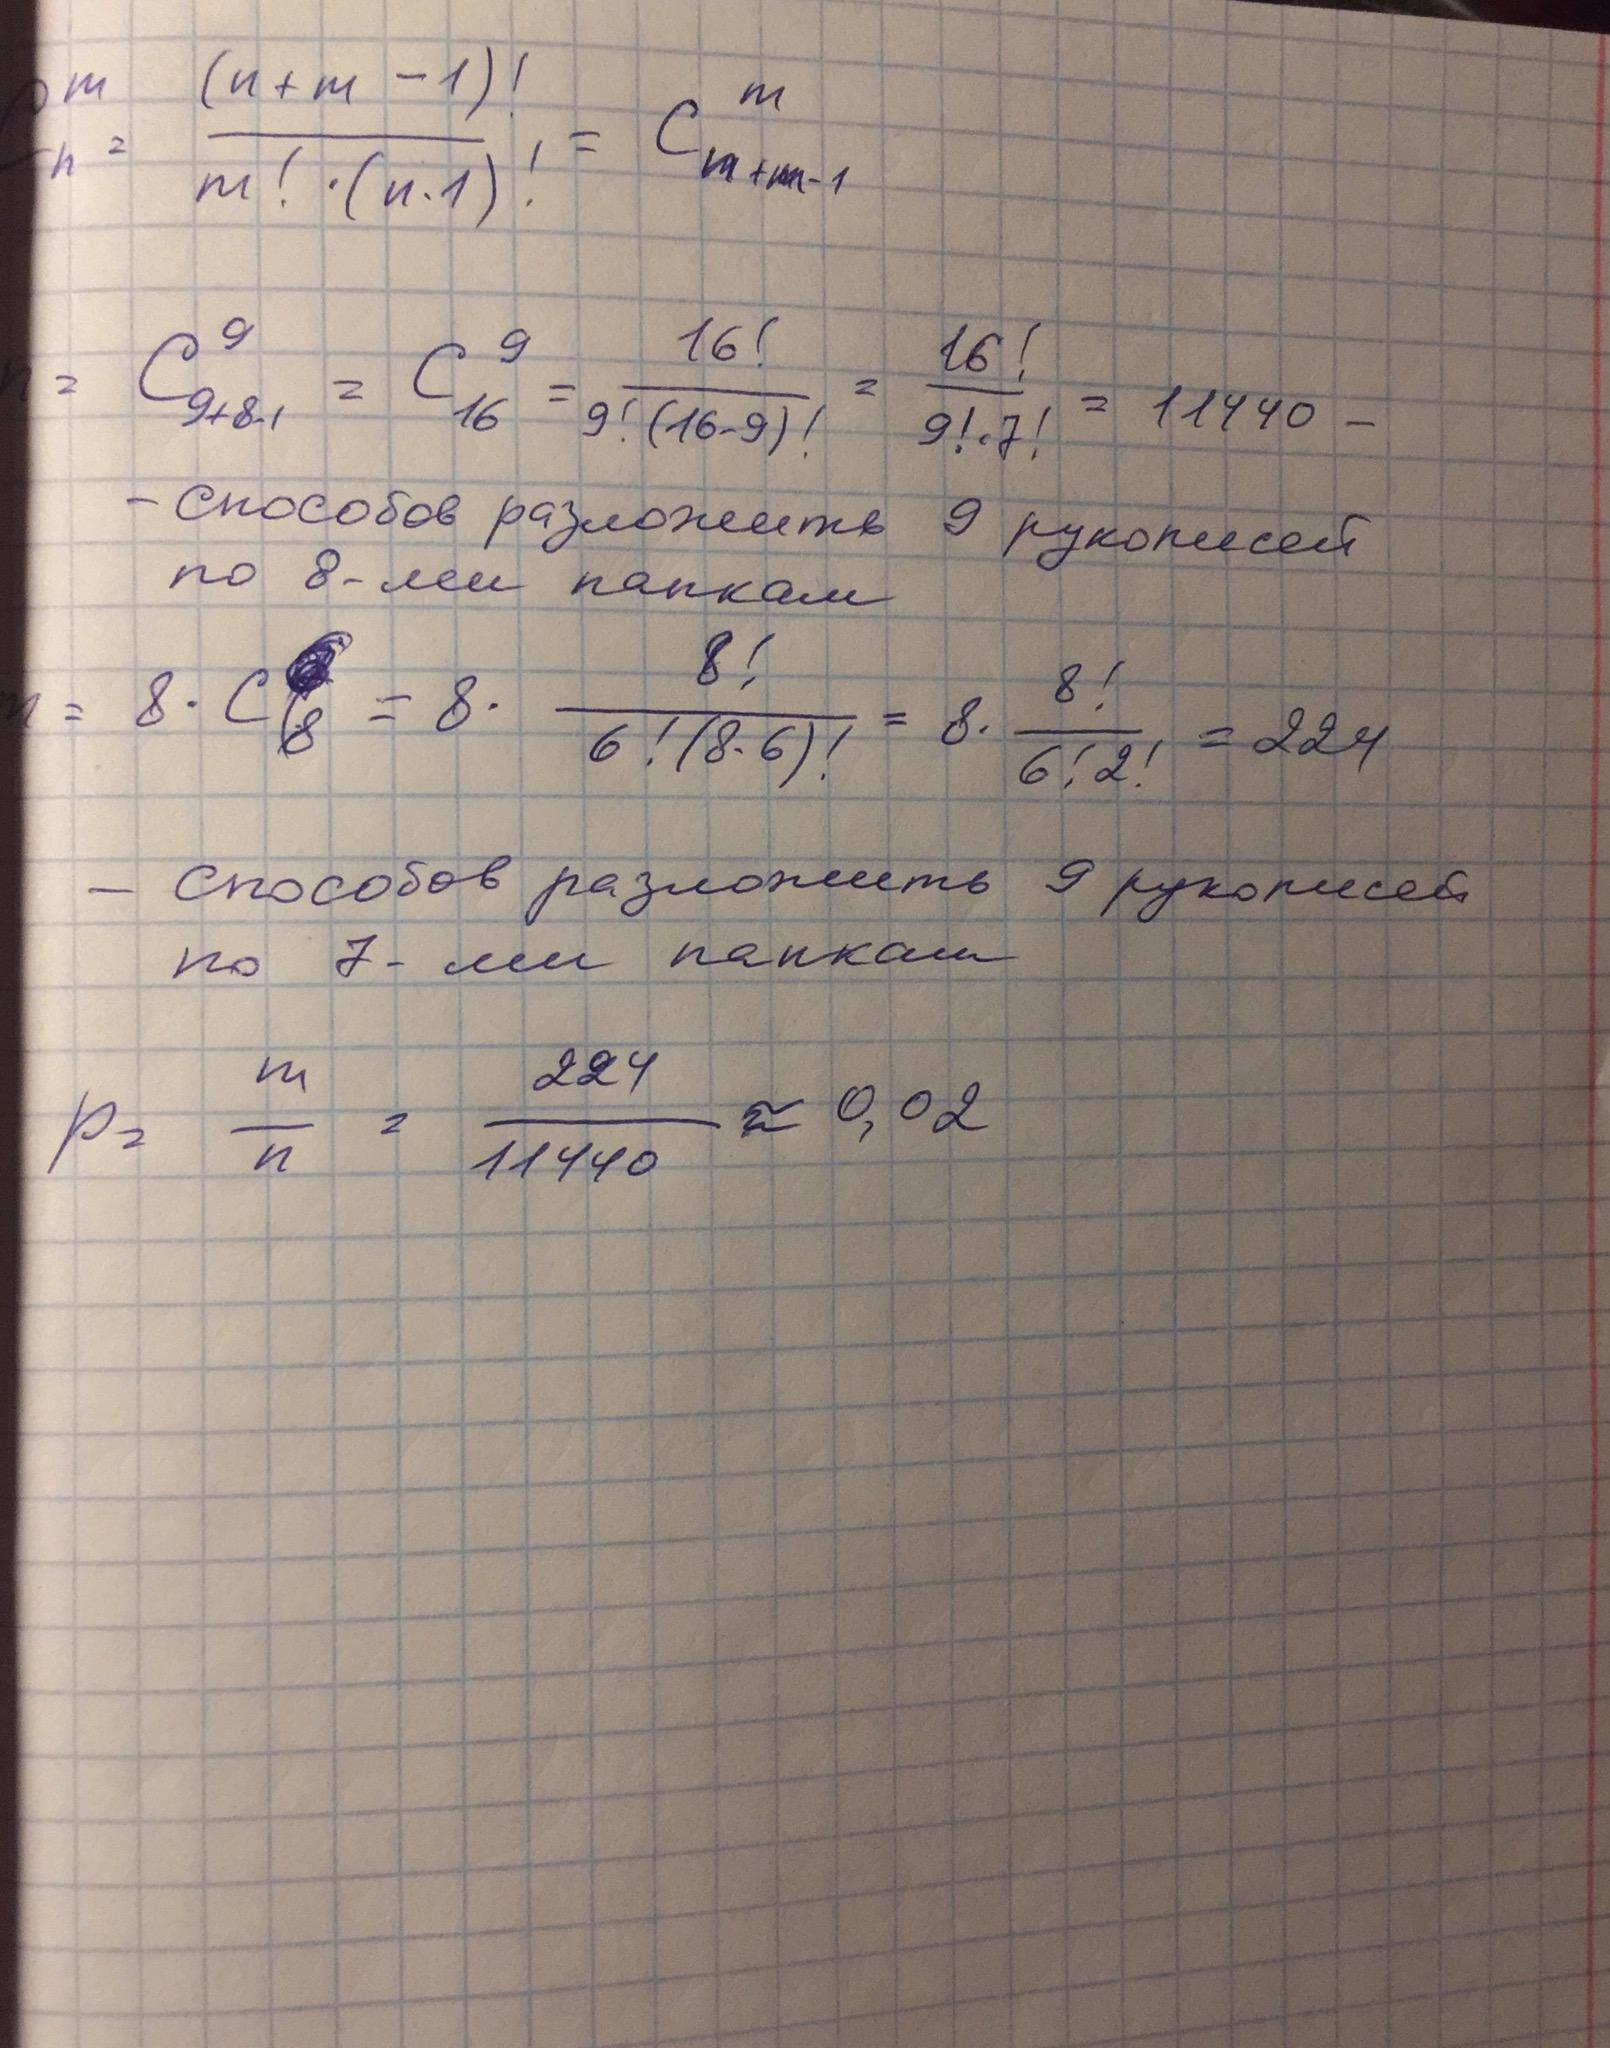 C̄ₙᵐ = (n+m-1)! / m!·(n-1)! = Cₘ₊ₘ₋₁ᵐ
n = C₉₊₈₋₁⁹ = C₁₆⁹ = 16! / 9!(16-9)! = 16! / 9!·7! = 11440 –
– способов разложить 9 рукописей
по 8-ми папкам
m = 8·C₈⁶ = 8· 8! / 6!(8-6)! = 8· 8! / 6!2! = 224
– способов разложить 9 рукописей
по 7-ми папкам
p = m / n = 224 / 11440 ≈ 0,02